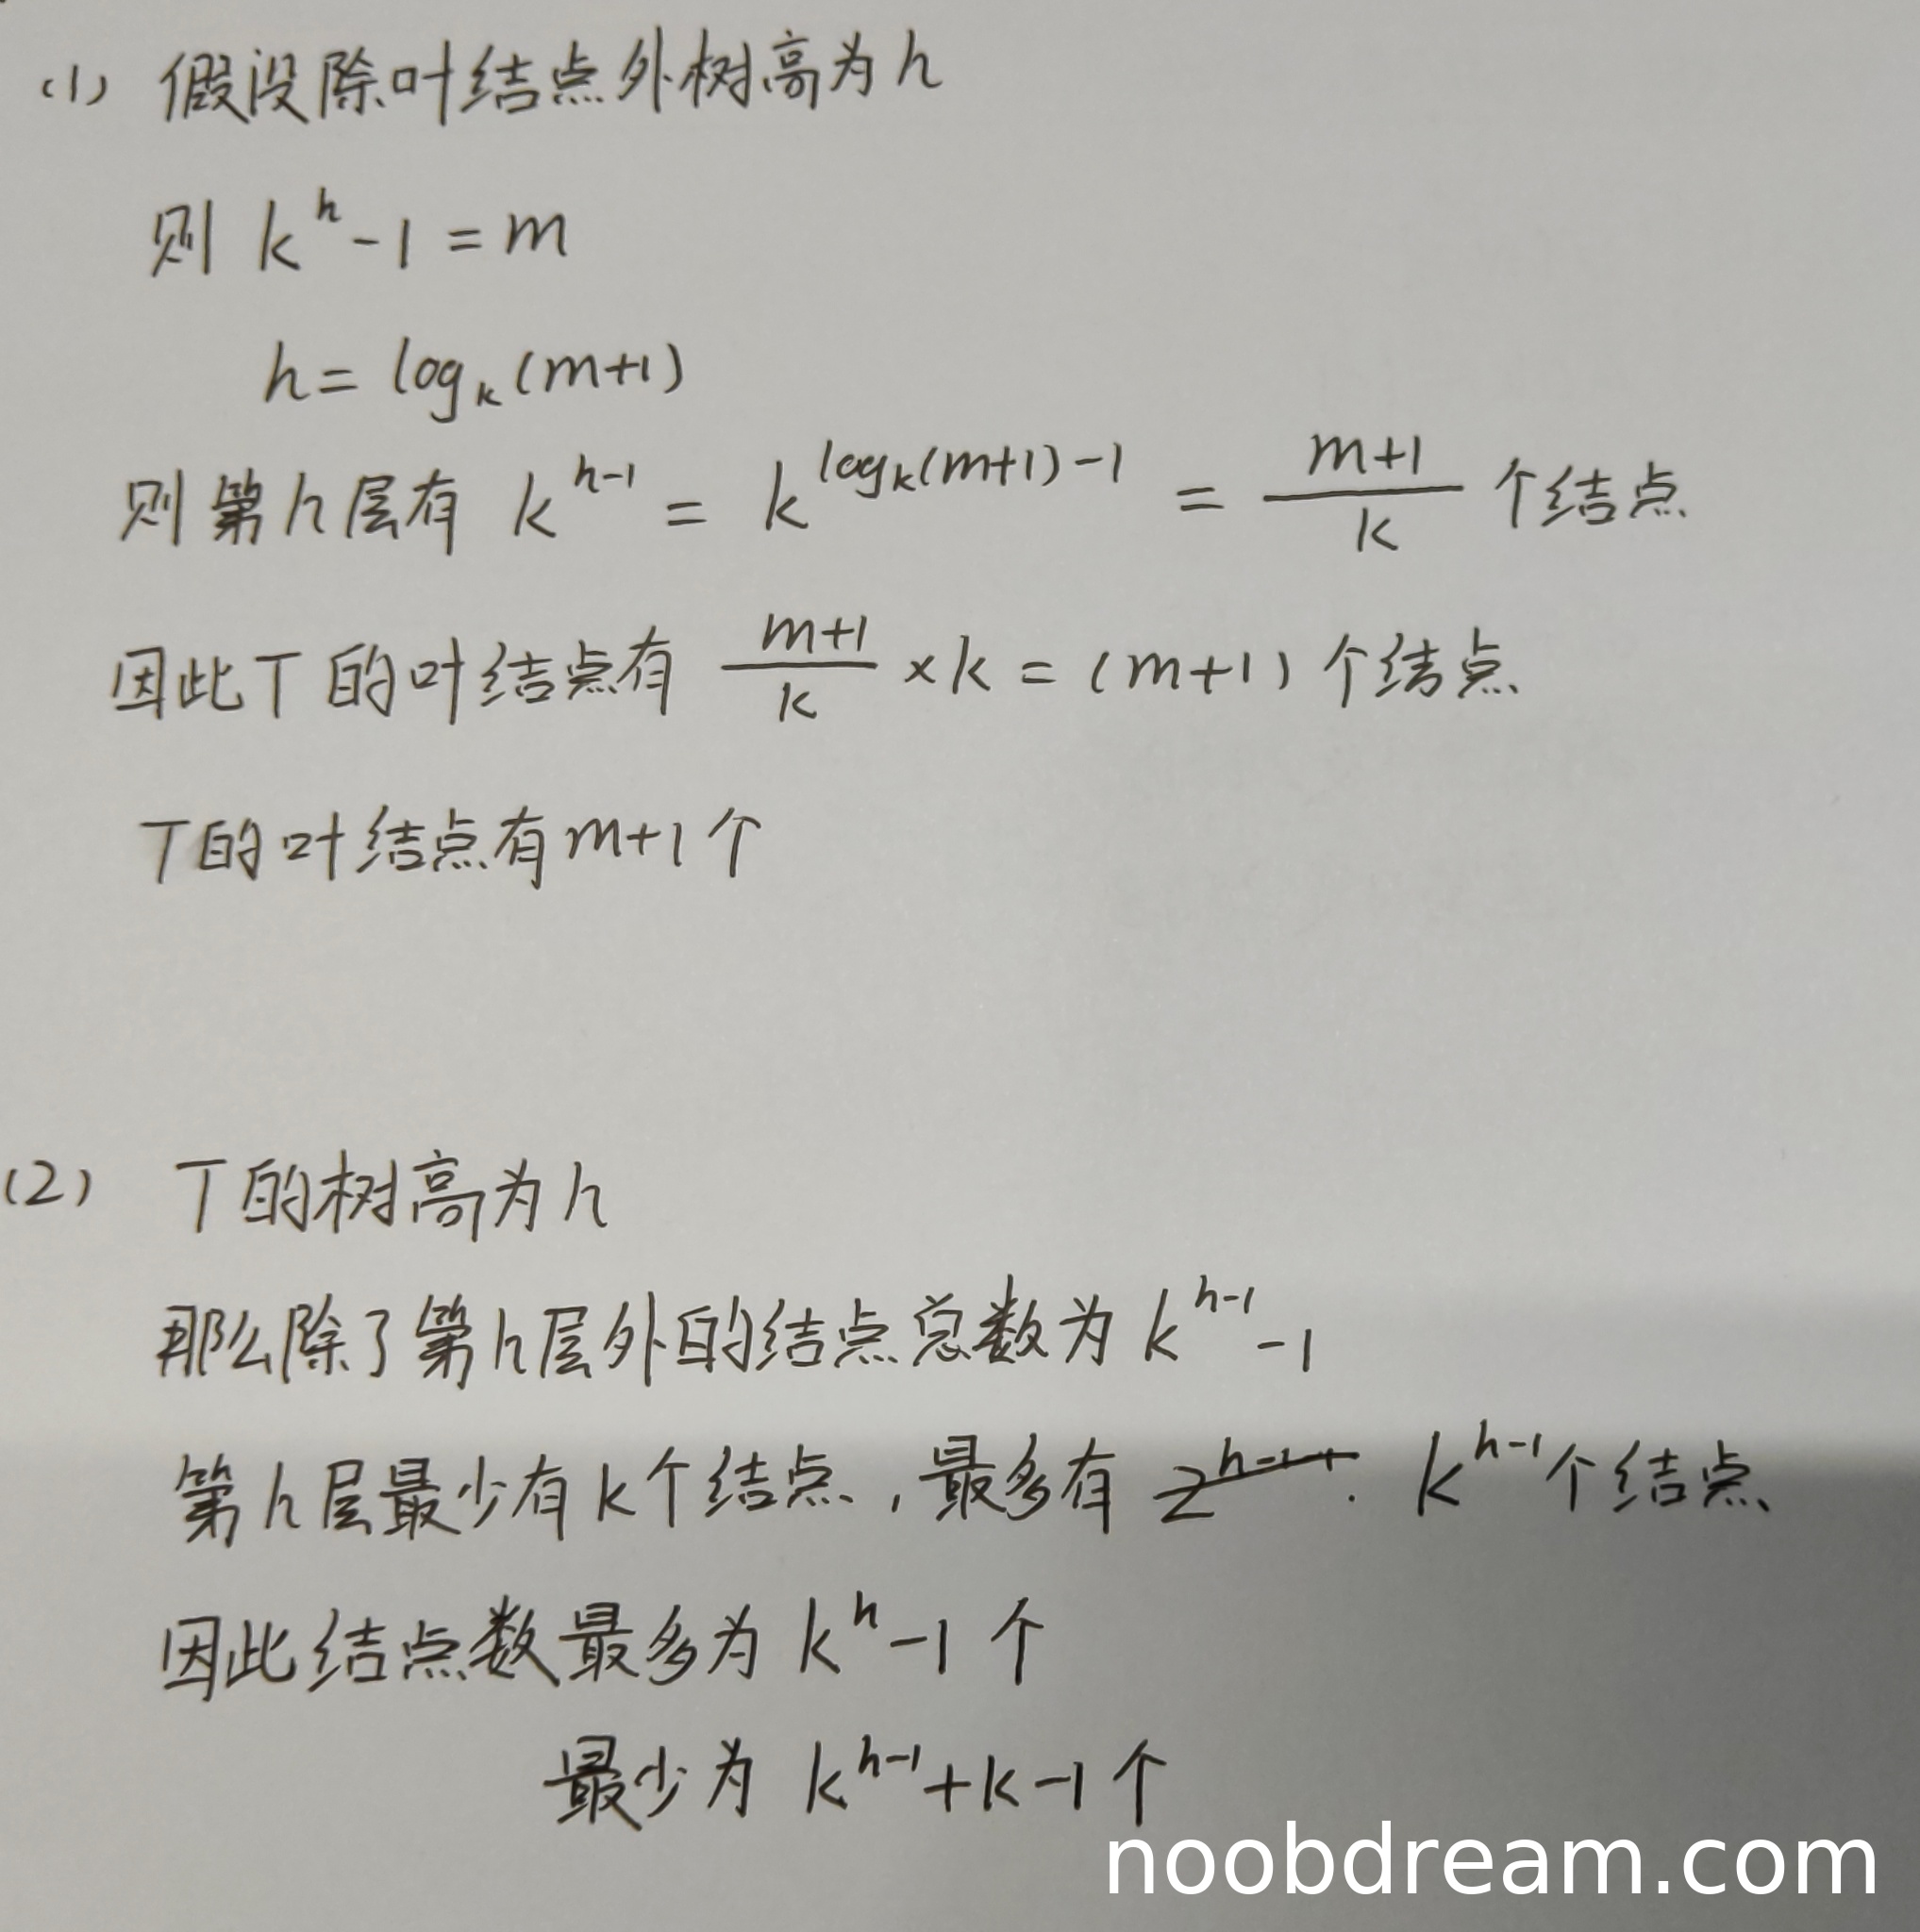 (1) 假设除叶结点外树高为h
则 k^h-1=m
h=log_k(m+1)
则第h层有 k^{h-1} = k^{log_k(m+1)-1} = \frac{m+1}{k} 个结点
因此T的叶结点有 \frac{m+1}{k} ×k = (m+1) 个结点
T的叶结点有m+1个
(2) T的树高为h
那么除了第h层外的结点总数为 k^{h-1}-1
第h层最少有k个结点,最多有 k^{h-1}个结点
因此结点数最多为 k^h-1个
最少为 k^{h-1}+k-1个
noobdream.com